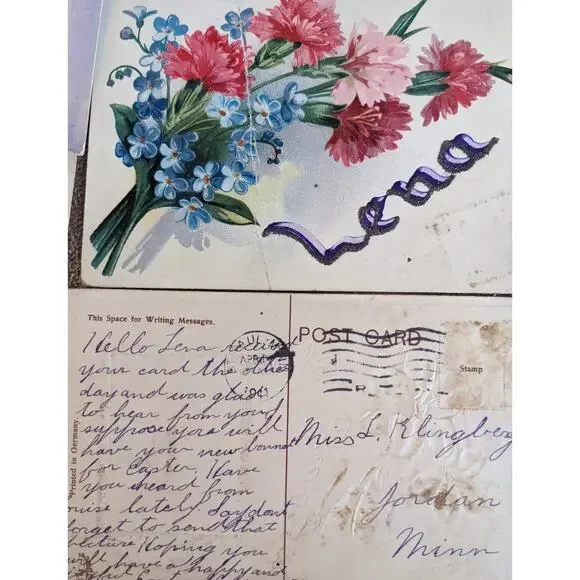 Lena
This Space for Writing Messages.
POST CARD
Stamp
Printed in Germany
APR
1911
Hello Lena
your card the other
day and was glad
to hear from you I
suppose you will
have your new bonnet
for Easter, Have
you heard from
lately. Say dont
forget to send that
picture Hoping you
will have a happy and
Miss L. Klingberg
Jordan
Minn